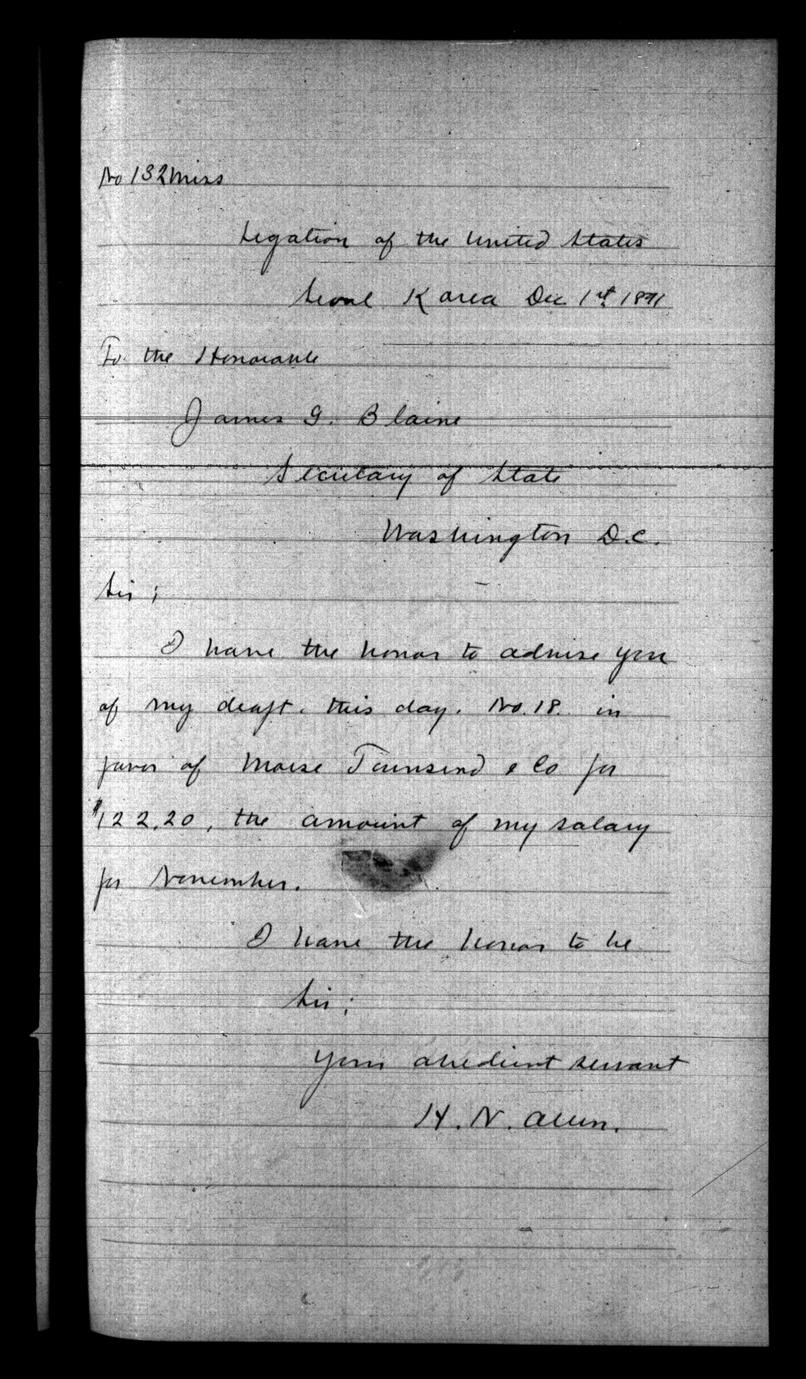 No 132 Miss
Legation of the United States
Seoul Korea Dec 1st, 1891
To the Honorable
James G. Blaine
Secretary of State
Washington D.C.
Sir;
I have the honor to advise you
of my draft, this day, No. 18. in
favor of Morse Townsend & Co for
$122.20, the amount of my salary
for November.
I have the honor to be
Sir;
Your obedient servant
H. N. Allen.